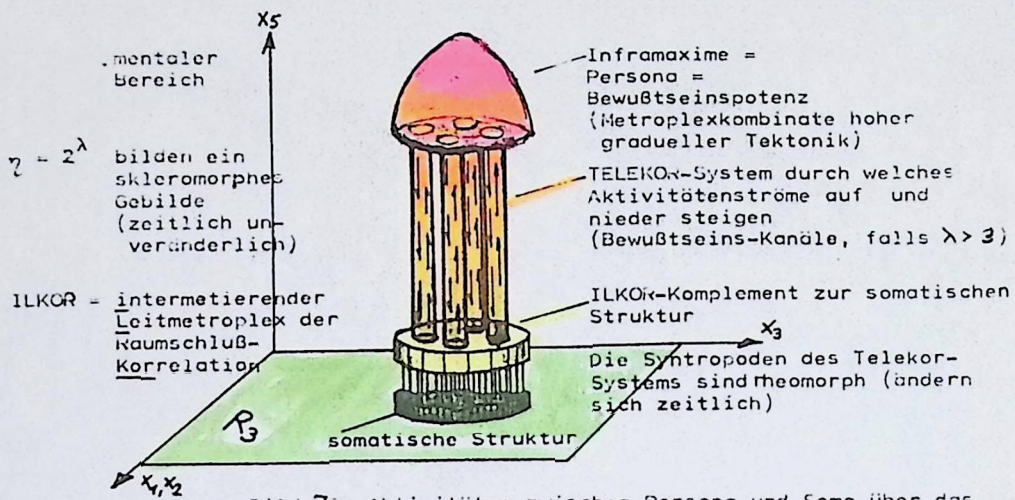 X5
mentaler
Bereich
η = 2^λ
bilden ein
skleromorphes
Gebilde
(zeitlich un-
veränderlich)
ILKOR = intermetierender
Leitmetroplex der
Raumschluß-
Korrelation
Inframaxime =
Persona =
Bewußtseinspotenz
(Metroplexkombinate hoher
gradueller Tektonik)
TELEKOR-System durch welches
Aktivitätenströme auf und
nieder steigen
(Bewußtseins-Kanäle, falls λ > 3)
ILKOR-Komplement zur somatischen
Struktur
X3
Die Syntropoden des Telekor-
Systems sind rheomorph (ändern
sich zeitlich)
R3
somatische Struktur
X1, X2
zwischen Persona und Soma über das